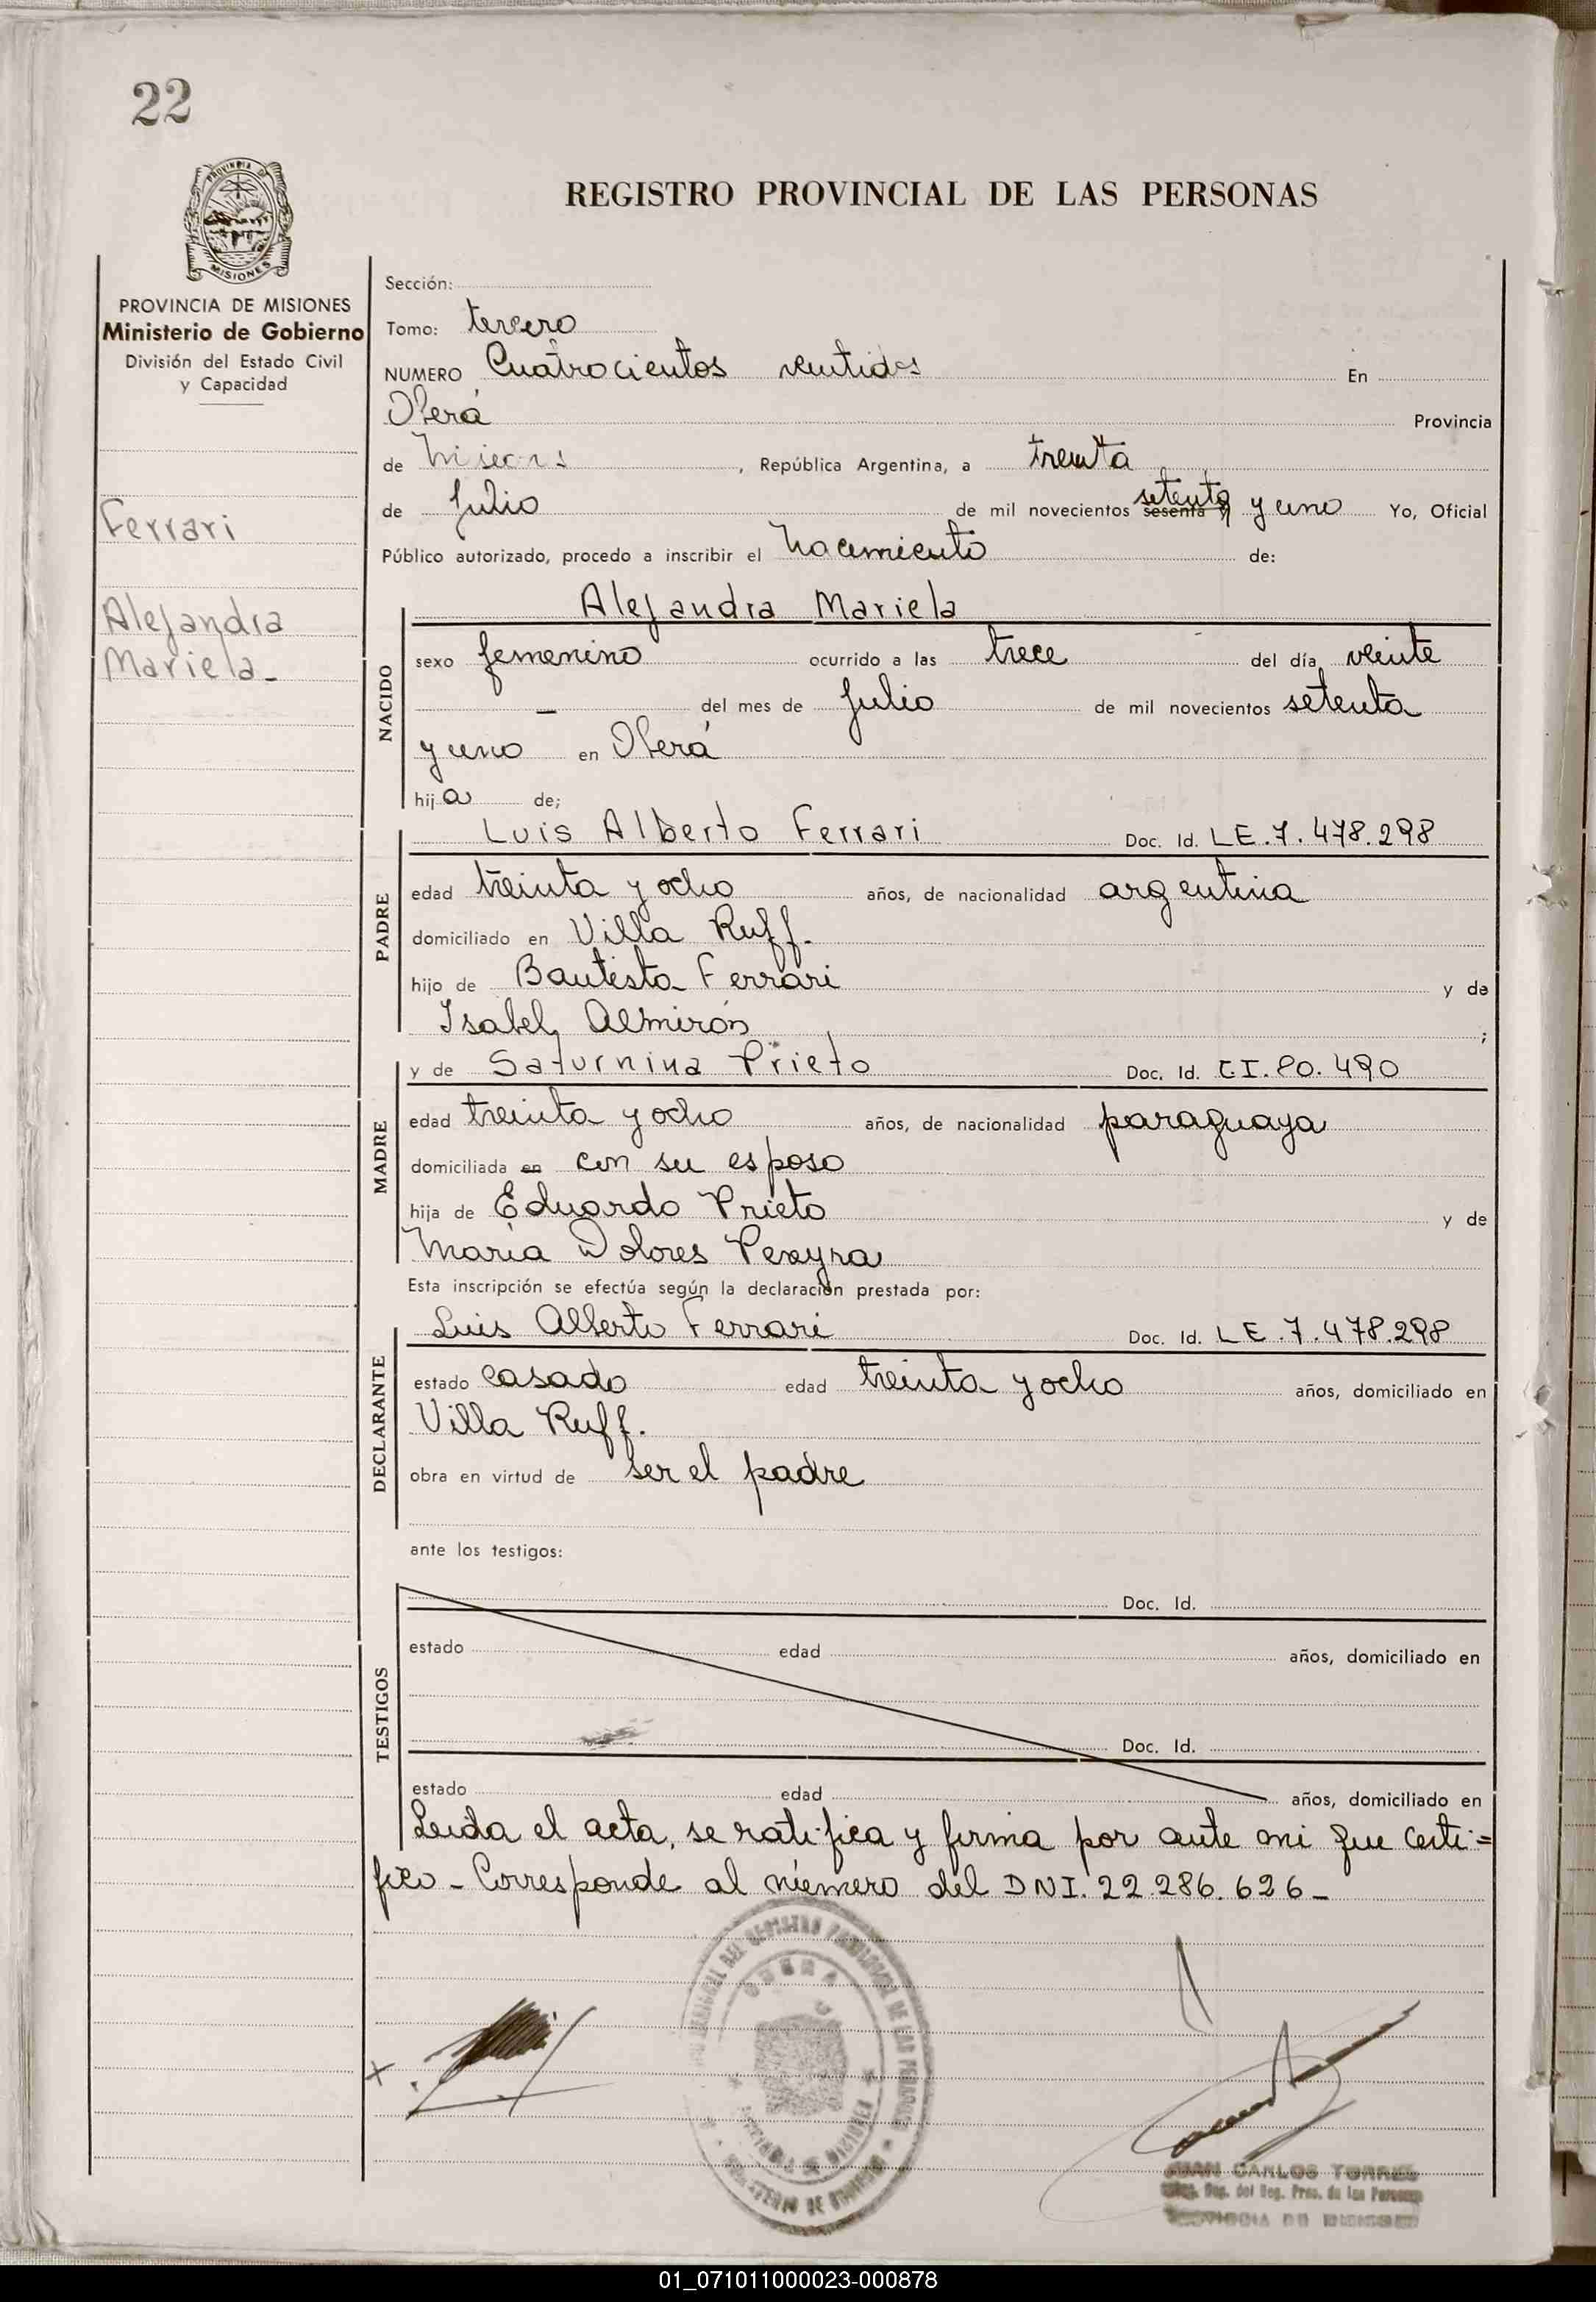 22
REGISTRO PROVINCIAL DE LAS PERSONAS
PROVINCIA DE MISIONES
Ministerio de Gobierno
División del Estado Civil
y Capacidad
Ferrari
Alejandra
Mariela-
Sección:
Tomo: tercero
NUMERO Cuatrocientos ventidos En
Oberá Provincia
de Misiones, República Argentina, a treinta
de Julio de mil novecientos sesenta y setenta y uno Yo, Oficial
Público autorizado, procedo a inscribir el Nacimiento de:
NACIDO
Alejandra Mariela
sexo femenino ocurrido a las trece del día veinte
— del mes de Julio de mil novecientos setenta
y uno en Oberá
hija de;
PADRE
Luis Alberto Ferrari Doc. Id. LE.7.478.298
edad treinta y ocho años, de nacionalidad argentina
domiciliado en Villa Ruff.
hijo de Bautista Ferrari y de
Isabel Almirón ;
MADRE
y de Saturnina Prieto Doc. Id. CI.80.490
edad treinta y ocho años, de nacionalidad paraguaya
domiciliada en con su esposo
hija de Eduardo Prieto y de
María Dolores Pereyra
Esta inscripción se efectúa según la declaración prestada por:
DECLARANTE
Luis Alberto Ferrari Doc. Id. LE.7.478.298
estado casado edad treinta y ocho años, domiciliado en
Villa Ruff.
obra en virtud de ser el padre
ante los testigos:
TESTIGOS
Doc. Id.
estado edad años, domiciliado en
Doc. Id.
estado edad años, domiciliado en
Leida el acta, se ratifica y firma por ante mi que certi=
fico - Corresponde al número del DNI. 22.286.626-
OBERA
JUAN CARLOS TORRES
del Reg. Prov. de las Personas
PROVINCIA DE MISIONES
01_071011000023-000878